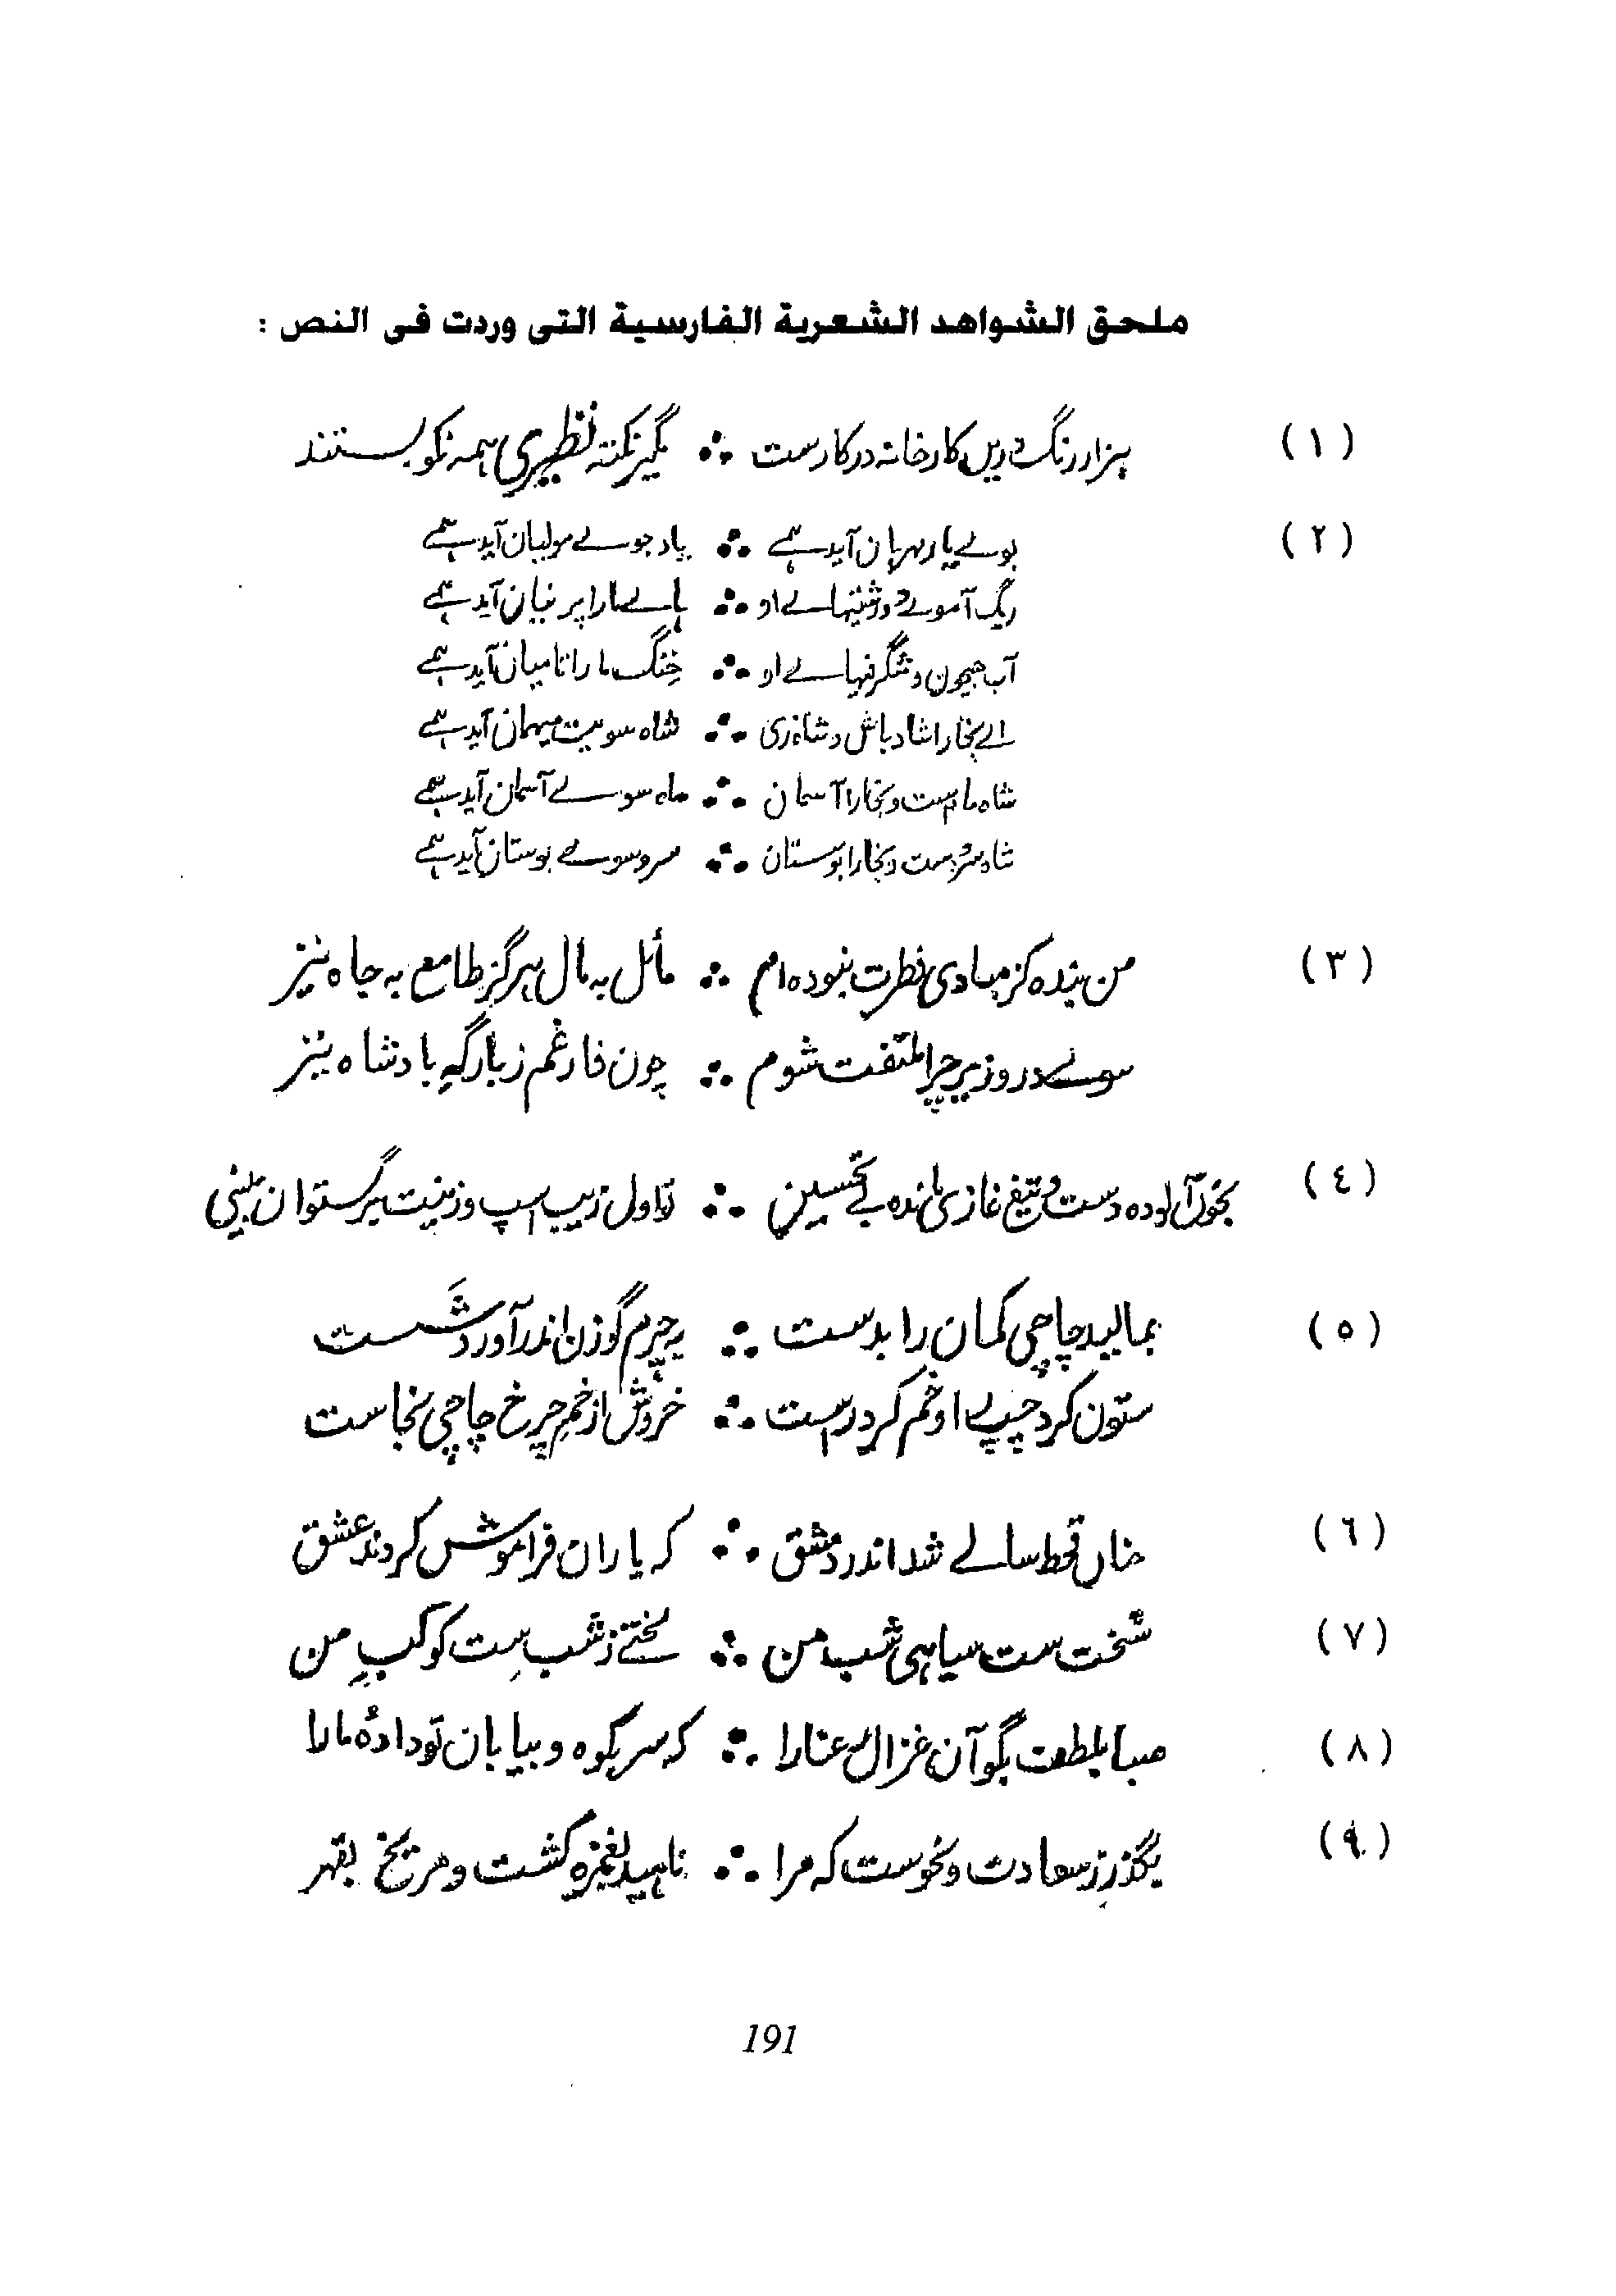 ملحق الشواهد الشعرية الفارسية التى وردت فى النص :
(١) ہزار رنگ دریں کارخانہ درکارست ∴ مگیر نکتہ نظیری ہمہ نکو بستند
(٢) بوے یار مہربان آید ہمے ∴ یاد جوے مولیان آید ہمے
ریگ آموے و درشتیہاے او ∴ پاے مارا پرنیان آید ہمے
آب جیحون و شگرفیہاے او ∴ خنگ مارا تا میان آید ہمے
اے بخارا شاد باش و شاد زی ∴ شاہ سویت میہمان آید ہمے
شاہ ماہ ست و بخارا آسمان ∴ ماہ سوے آسمان آید ہمے
شاہ سرو ست و بخارا بوستان ∴ سرو سوے بوستان آید ہمے
(٣) من بندہ کز مبادی فطرت نبودہ ام ∴ مائل بہ مال ہرگز طامع بہ جاہ نیز
سوے در وزیر چرا ملتفت شوم ∴ چون فارغم ز بارگہِ بادشاہ نیز
(٤) بخون آلودہ دست و تیغ غازی ماندہ بے تحسین ∴ تو اول زیب اسپ و زینت برگستوان بینی
(٥) بمالید چاچی کمان را بدست ∴ بہ چرم گوزن اندر آورد شَست
ستون کرد چپ را و خم کرد راست ∴ خروش از خمِ چرخ چاچی بخاست
(٦) چناں قحط سالے شد اندر دمشق ∴ کہ یاران فراموش کردند عشق
(٧) سخت ست سیاہی شب من ∴ لختے ز شب ست کوکبِ من
(٨) صبا بلطف بگو آن غزال رعنا را ∴ کہ سر بکوہ و بیابان تو دادۂ ما را
(٩) بگذر ز سعادت و نحوست کہ مرا ∴ ناہید بغمزہ کشت و مریخ بقہر
191